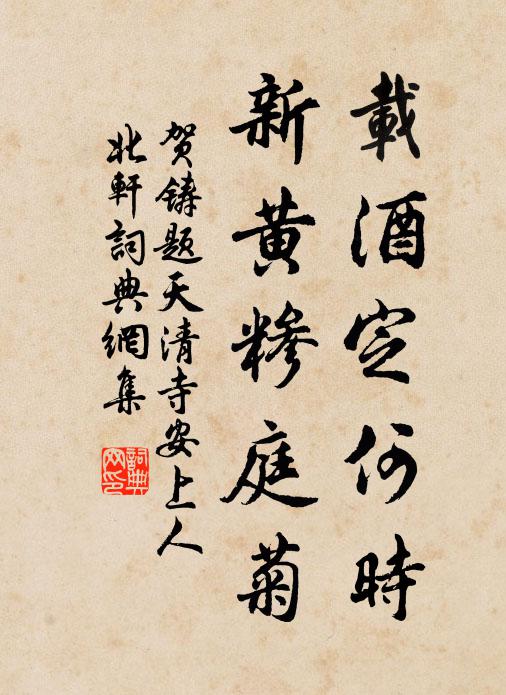 載酒定何時
新黄糝庭菊
贺鑄题天清寺安上人
北軒詞典網集
詞典网印